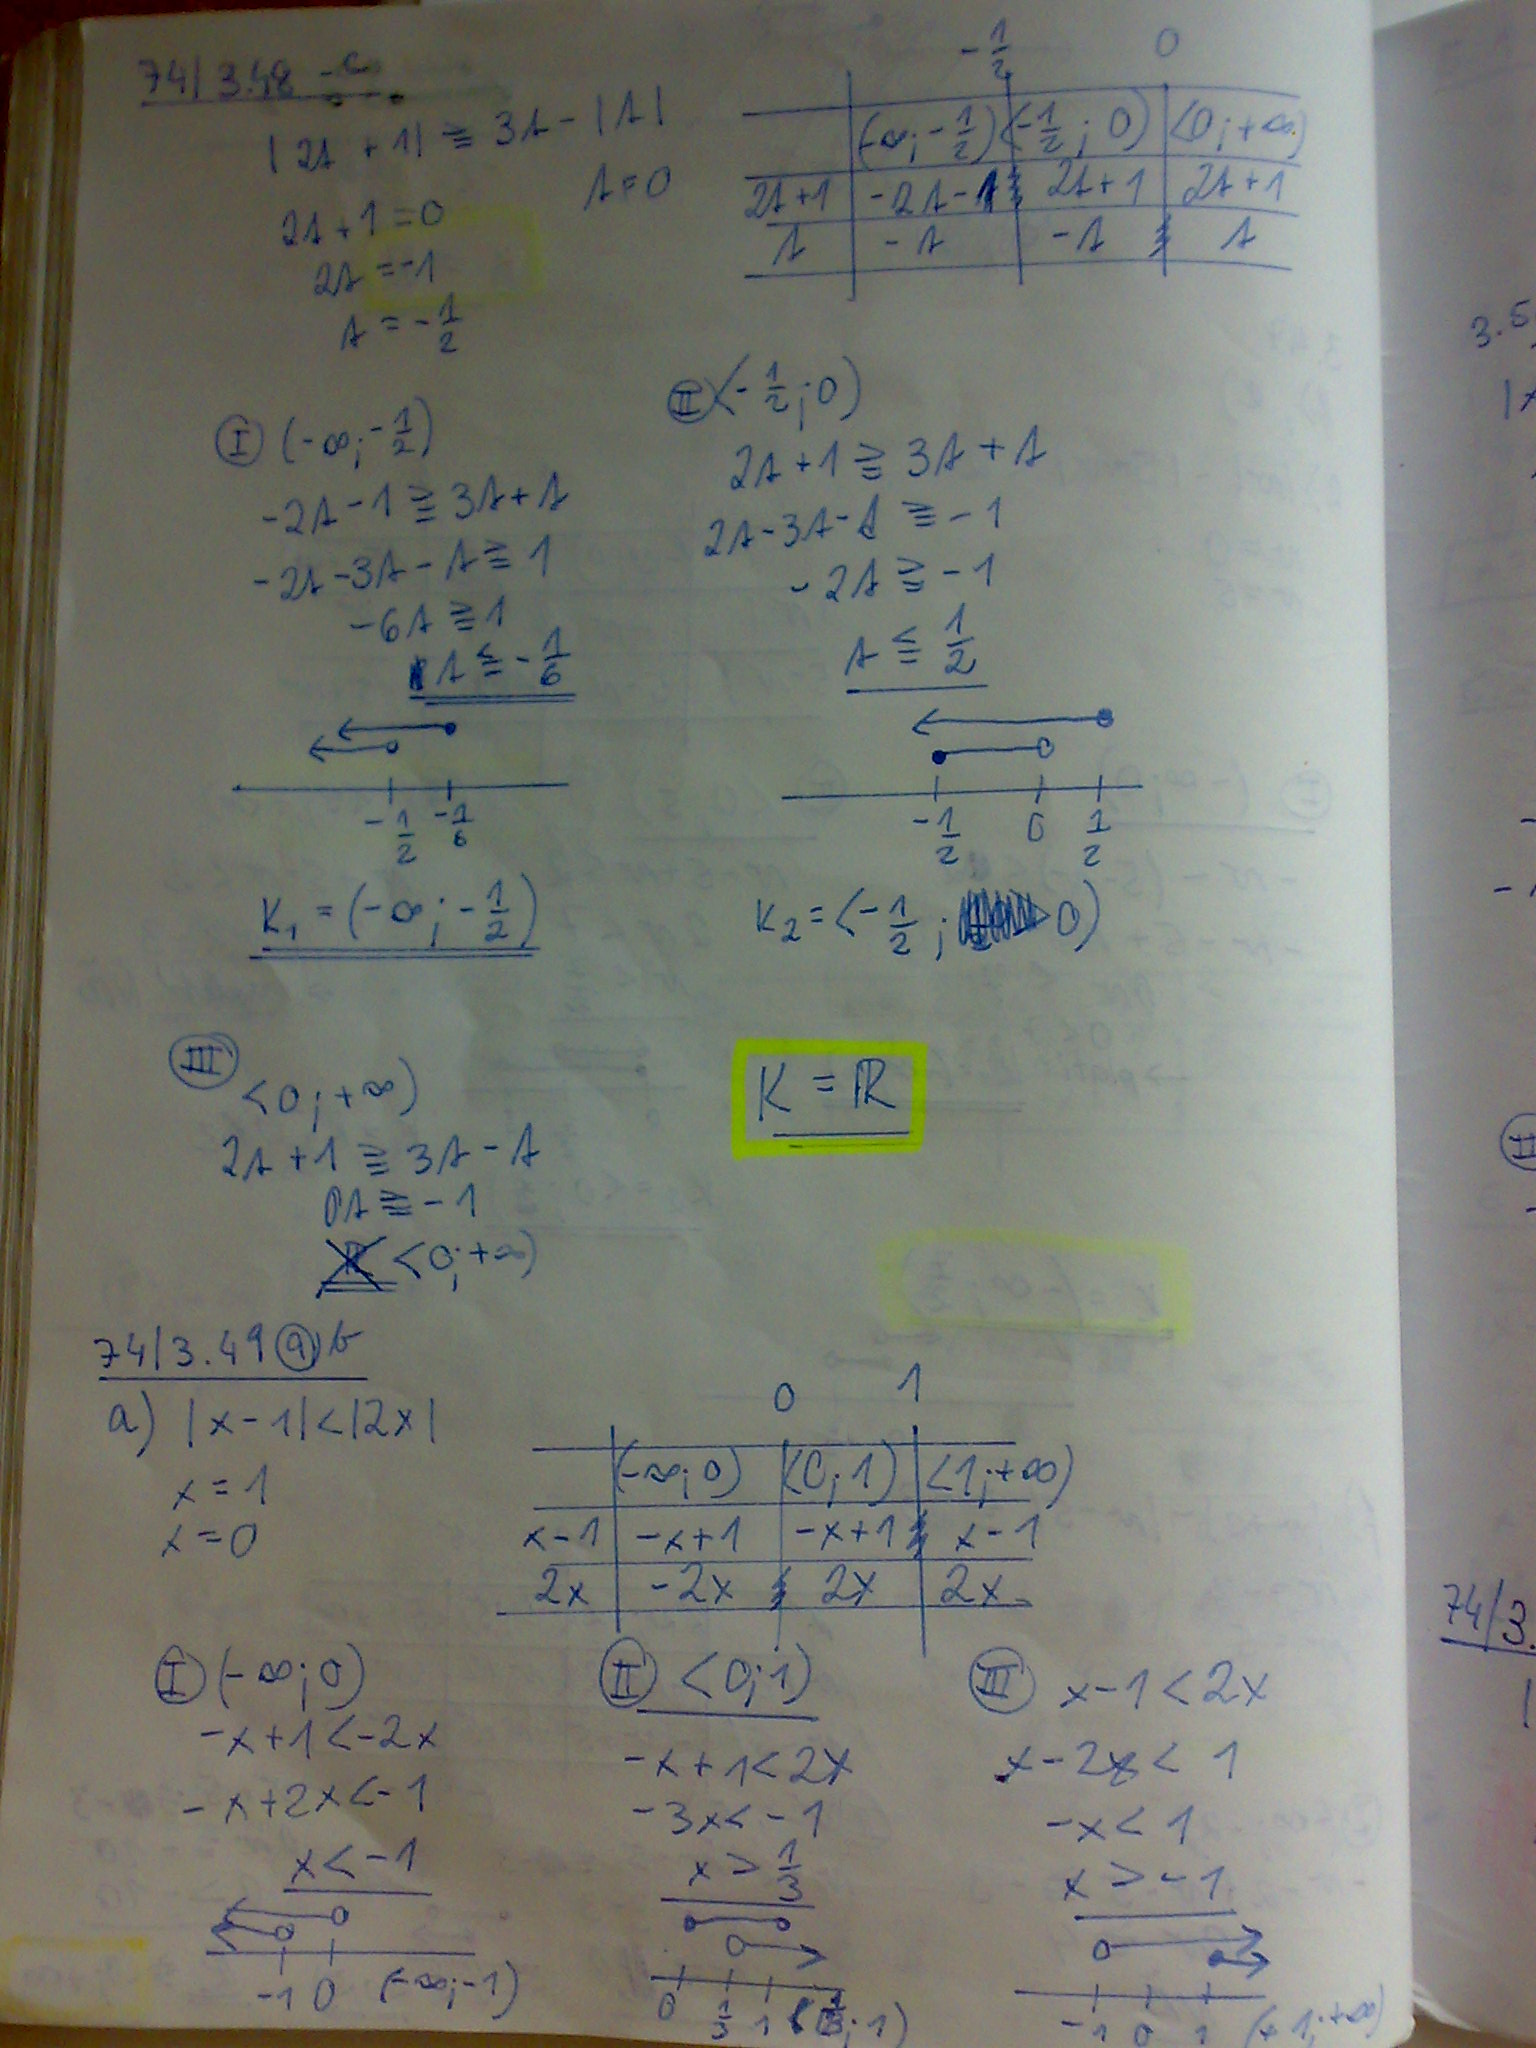 74/3.48 - c
|2A + 1| ≧ 3A - |A|
2A + 1 = 0
A = 0
2A = -1
A = -1/2
-1/2 0
(-∞; -1/2) <-1/2; 0) <0; +∞)
2A+1 -2A-1 2A+1 2A+1
A -A -A A
I (-∞; -1/2)
-2A-1 ≧ 3A+A
-2A-3A-A ≧ 1
-6A ≧ 1
A ≦ -1/6
-1/2 -1/6
K₁ = (-∞; -1/2)
II <-1/2; 0)
2A+1 ≧ 3A+A
2A-3A-A ≧ -1
-2A ≧ -1
A ≦ 1/2
-1/2 0 1/2
K₂ = <-1/2; 0)
III
<0; +∞)
2A+1 ≧ 3A-A
0A ≧ -1
<0; +∞)
K = ℝ
74/3.49 a) b
a) |x-1| < |2x|
x = 1
x = 0
0 1
(-∞; 0) <0; 1) <1; +∞)
x-1 -x+1 -x+1 x-1
2x -2x 2x 2x
I (-∞; 0)
-x+1 < -2x
-x+2x < -1
x < -1
-1 0 (-∞; -1)
II <0; 1)
-x+1 < 2x
-3x < -1
x > 1/3
0 1/3 1 (1/3; 1)
III x-1 < 2x
x-2x < 1
-x < 1
x > -1
-1 0 1
3.5
74/3.